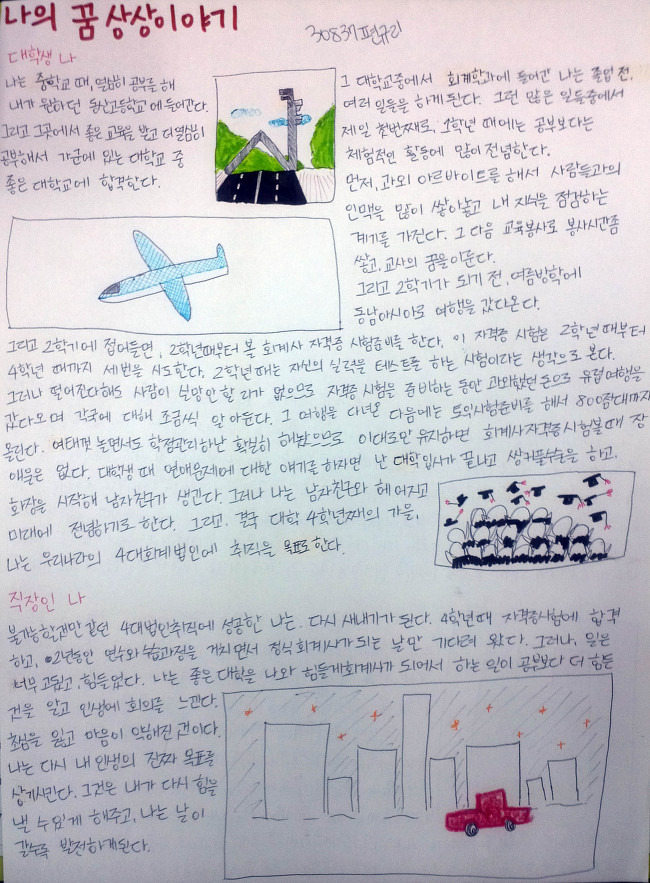 나의 꿈 상상이야기
30837 편규리
대학생 나
나는 중학교 때, 열심히 공부를 해
내가 원하던 동산고등학교에 들어간다.
그리고 그곳에서 좋은 교육을 받고 더 열심히
공부해서 가군에 있는 대학교 중
좋은 대학교에 합격한다.
그 대학교중에서 회계학과에 들어간 나는 졸업 전,
여러 일들을 하게 된다. 그런 많은 일들중에서
제일 첫번째로, 1학년 때에는 공부보다는
체험적인 활동에 많이 전념한다.
먼저, 과외 아르바이트를 해서 사람들과의
인맥을 많이 쌓아놓고 내 지식을 점검하는
계기를 가진다. 그 다음 교육봉사로 봉사시간좀
쌓고, 교사의 꿈을 이룬다.
그리고 2학기가 되기 전, 여름방학에
동남아시아로 여행을 갔다온다.
그리고 2학기에 접어들면, 2학년때부터 볼 회계사 자격증 시험준비를 한다. 이 자격증 시험은 2학년 때부터
4학년 때까지 세번을 시도한다. 2학년 때는 자신의 실력을 테스트를 하는 시험이라는 생각으로 본다.
그러나 떨어진다해도 사람이 실망안 할 리가 없으므로 자격증 시험을 준비하는 동안 과외했던 돈으로 유럽여행을
갔다오며 각국에 대해 조금씩 알아둔다. 그 여행을 다녀온 다음에는 토익시험준비를 해서 800점대까지
올린다. 여태껏 놀면서도 학점관리하난 확실히 해놨으므로 이대로만 유지하면 회계사자격증시험볼 때 장
애물은 없다. 대학생 때 연애문제에 대한 얘기를 하자면 난 대학입시가 끝나고 쌍커풀수술을 하고,
화장을 시작해 남자친구가 생긴다. 그러나 나는 남자친구와 헤어지고
미래에 전념하기로 한다. 그리고, 결국 대학 4학년째의 가을,
나는 우리나라의 4대회계법인에 취직을 목표로 한다.
직장인 나
불가능할것만 같던 4대법인취직에 성공한 나는 다시 새내기가 된다. 4학년때 자격증시험에 합격
하고, 2년동안 연수와 실습과정을 거치면서 정식회계사가 되는 날만 기다려 왔다. 그러나, 일은
너무 고되고, 힘들었다. 나는 좋은 대학을 나와 힘들게 회계사가 되어서 하는 일이 공부보다 더 힘든
것을 알고 인생에 회의를 느낀다.
초심을 잃고 마음이 약해진 것이다.
나는 다시 내 인생의 진짜 목표를
상기시킨다. 그것은 내가 다시 힘을
낼 수 있게 해주고, 나는 날이
갈수록 발전하게된다.